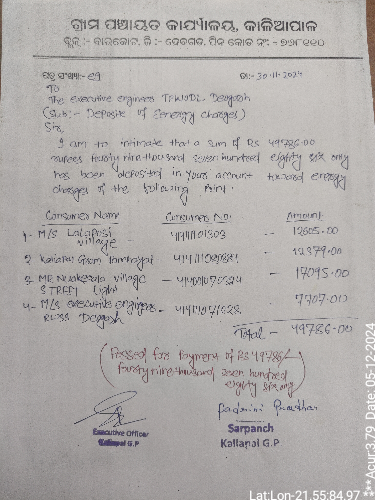 ଗ୍ରାମ ପଞ୍ଚାୟତ କାର୍ଯ୍ୟାଳୟ, କାଳିଆପାଳ
ବ୍ଲକ୍ :- ବାରକୋଟ, ଜି :- ଦେବଗଡ, ପିନ କୋଡ ନଂ - ୭୬୮୧୧୦
ପତ୍ର ସଂଖ୍ୟା:-
ତା:- 30-11-2024
To
The executive engineer TPWODL Deogarh
(Sub:- Deposite of Eenergy charges)
Sir,
I am to intimate that a sum of Rs 49786.00
rupees fourty nine thousand seven hundred eighty six only
has been deposited in your account toward energy
charges of the following Point.
Consumer Name Consumer No. Amount
1- M/s Lalapasi village -- 12605.00
2. Kaliapal Gram -- 12379.00
3. village STREET Light -- 17095.00
4- M/s executive engineer RWSS Deogarh --
Total - 49786.00
(Passed for Payment of Rs 49786/-
fourty nine thousand seven hundred
eighty six only)
Executive Officer
Kaliapal G.P
Sarpanch
Kaliapal G.P
Lat:Lon-21.55:84.97
***Acur:3.79 Date:05-12-2024